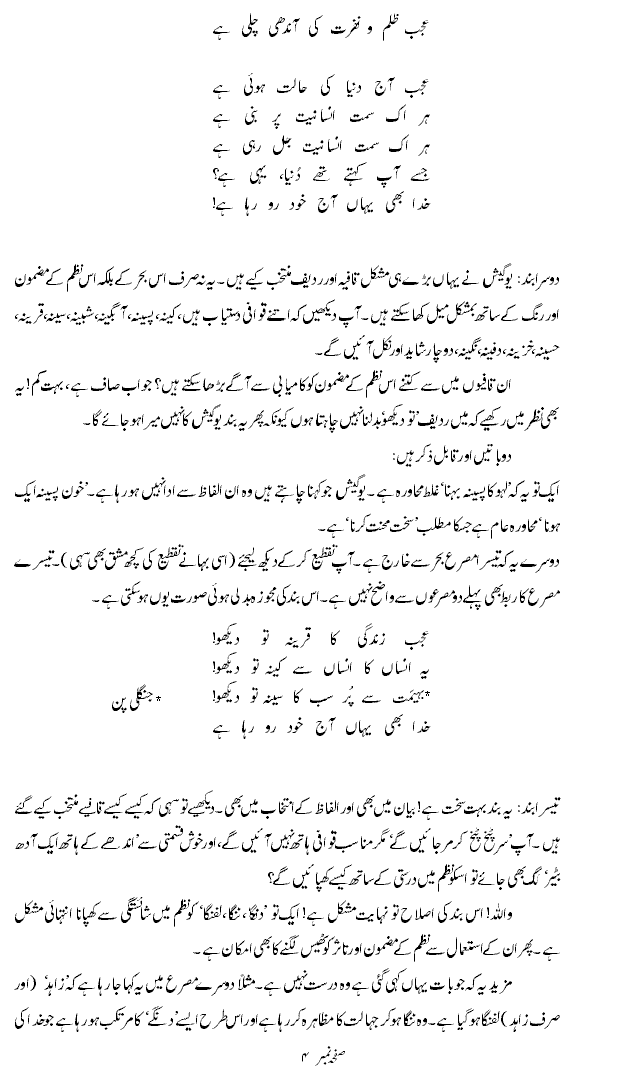 عجب ظلم و نفرت کی آندھی چلی ہے
عجب آج دنیا کی حالت ہوئی ہے
ہر اک سمت انسانیت پر بنی ہے
ہر اک سمت انسانیت جل رہی ہے
جسے آپ کہتے تھے دُنیا، یہی ہے؟
خدا بھی یہاں آج خود رو رہا ہے!
دوسرا بند: یوگیش نے یہاں بڑے ہی مشکل قافیہ اور ردیف منتخب کیے ہیں۔ یہ نہ صرف اس بحر کے بلکہ اس نظم کے مضمون
اور رنگ کے ساتھ بمشکل میل کھا سکتے ہیں۔ آپ دیکھیں کہ اتنے قوافی دستیاب ہیں، کینہ، پسینہ، آبگینہ، شبینہ، سینہ، قرینہ،
حسینہ، خزینہ، دفینہ، نگینہ، دو چار شاید اور نکل آئیں گے۔
ان قافیوں میں سے کتنے اس نظم کے مضمون کو کامیابی سے آگے بڑھا سکتے ہیں؟ جواب صاف ہے، بہت کم! یہ
بھی نظر میں رکھیے کہ میں ردیف ’تو دیکھو‘ بدلنا نہیں چاہتا ہوں کیونکہ پھر یہ بند یوگیش کا نہیں میرا ہو جائے گا۔
دو باتیں اور قابل ذکر ہیں:
ایک تو یہ کہ ’لہو کا پسینہ بہنا‘ غلط محاورہ ہے۔ یوگیش جو کہنا چاہتے ہیں وہ ان الفاظ سے ادا نہیں ہو رہا ہے۔ ’خون پسینہ ایک
ہونا‘ محاورہ عام ہے جسکا مطلب ’سخت محنت کرنا‘ ہے۔
دوسرے یہ کہ تیسرا مصرع بحر سے خارج ہے۔ آپ تقطیع کر کے دیکھ لیجئے (اسی بہانے تقطیع کی کچھ مشق بھی سہی)۔ تیسرے
مصرع کا ربط بھی پہلے دو مصرعوں سے واضح نہیں ہے۔ اس بند کی مجوزہ بدلی ہوئی صورت یوں ہو سکتی ہے۔
عجب زندگی کا قرینہ تو دیکھو!
یہ انساں کا انساں سے کینہ تو دیکھو!
*بہیمت سے پُر سب کا سینہ تو دیکھو! * جنگلی پن
خدا بھی یہاں آج خود رو رہا ہے
تیسرا بند: یہ بند بہت سخت ہے! بیان میں بھی اور الفاظ کے انتخاب میں بھی۔ دیکھیے تو سہی کہ کیسے کیسے قافیے منتخب کیے گئے
ہیں۔ آپ ’سر پٹخ پٹخ کر مر جائیں گے‘ مگر مناسب قوافی ہاتھ نہیں آئیں گے، اور خوش قسمتی سے ’اندھے کے ہاتھ ایک آدھ
بٹیر‘ لگ بھی جائے تو اسکو نظم میں درستی کے ساتھ کیسے کھپائیں گے؟
واللہ! اس بند کی اصلاح تو نہایت مشکل ہے! ایک تو ’دنگا، ننگا، لفنگا‘ کو نظم میں شائستگی سے کھپانا انتہائی مشکل
ہے۔ پھر ان کے استعمال سے نظم کے مضمون اور تاثر کو ٹھیس لگنے کا بھی امکان ہے۔
مزید یہ کہ جو بات یہاں کہی گئی ہے وہ درست نہیں ہے۔ مثلاً دوسرے مصرع میں یہ کہا جا رہا ہے کہ ’زاہد‘ (اور
صرف زاہد) لفنگا ہو گیا ہے۔ وہ ننگا ہو کر جہالت کا مظاہرہ کر رہا ہے اور اس طرح ایسے ’دنگے‘ کا مرتکب ہو رہا ہے جو خدا کی
صفحہ نمبر ۴